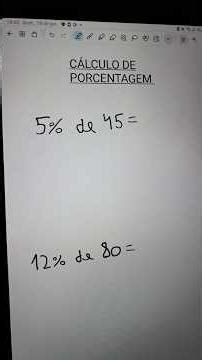 CÁLCULO DE
PORCENTAGEM
5% de 45=
12% de 80=